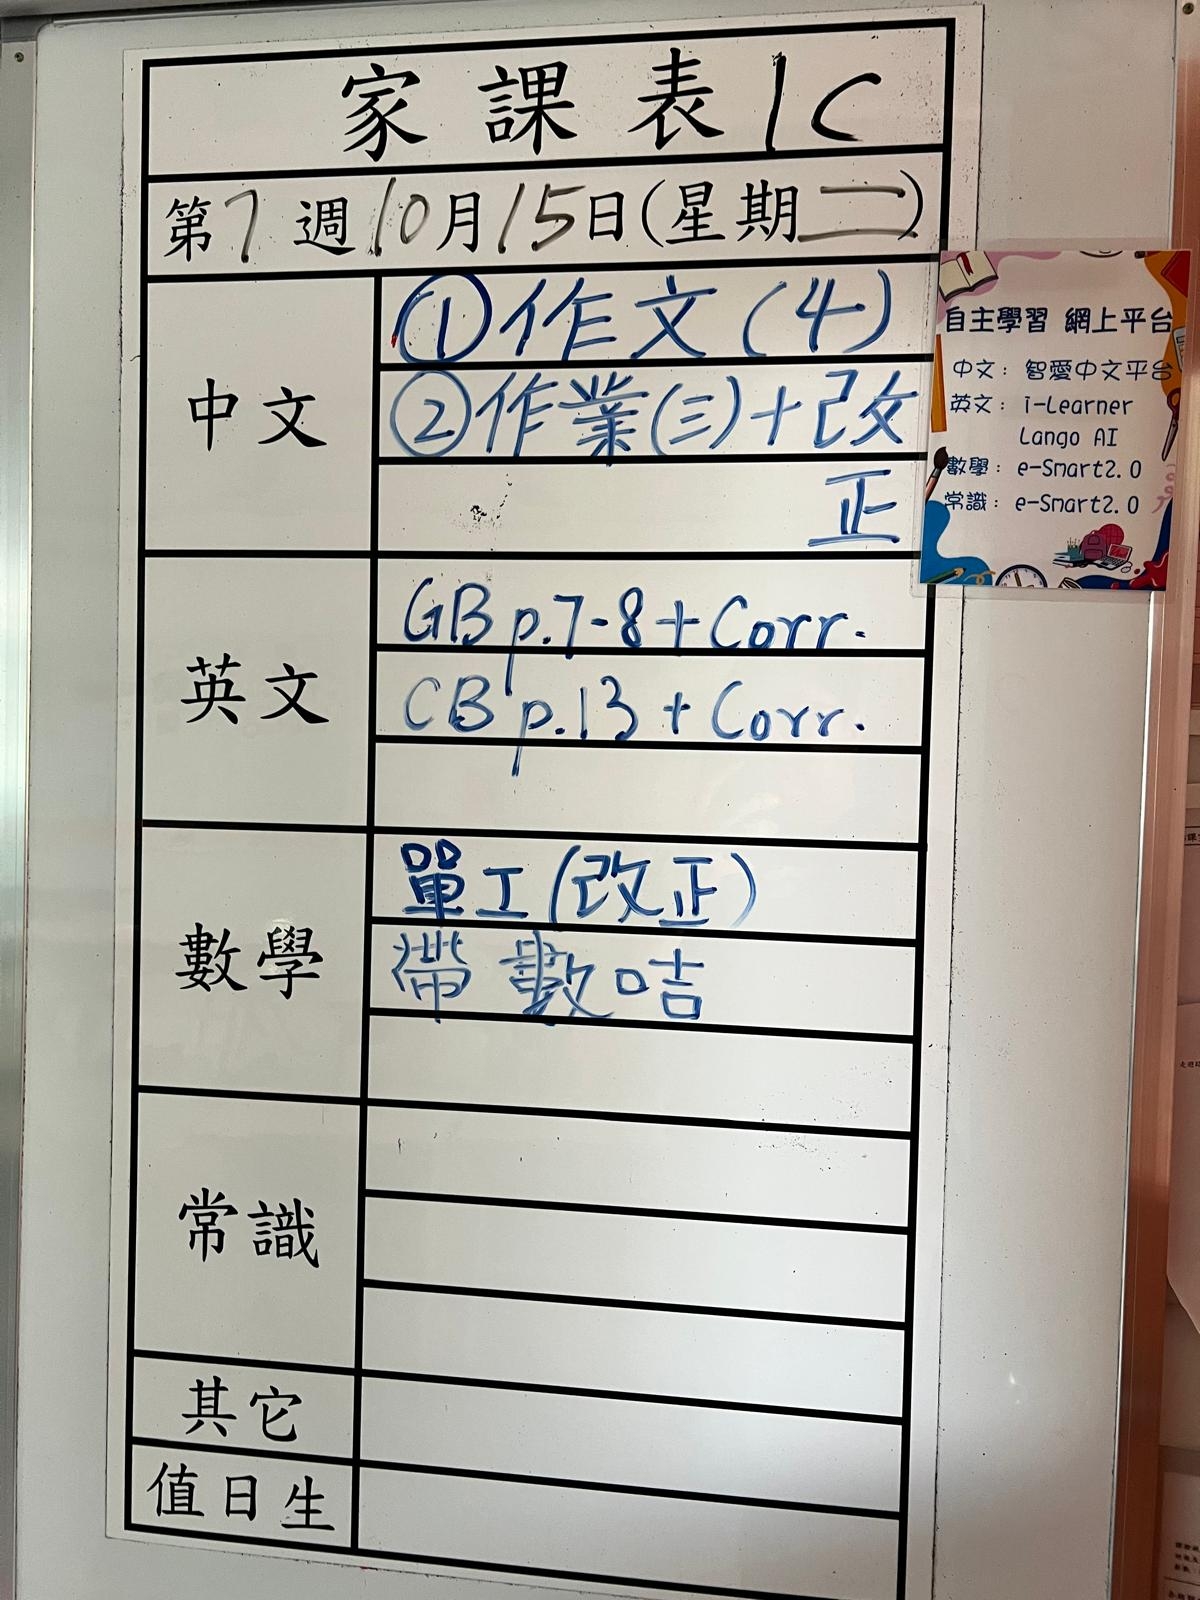 家課表1C
第7週10月15日(星期二)
中文
①作文(4)
②作業(三)+改
正
英文
GB p.7-8+Corr.
CB p.13+Corr.
數學
單工(改正)
帶數咭
常識
其它
值日生
自主學習 網上平台
中文：智愛中文平台
英文：i-Learner
Lango AI
數學：e-Smart2.0
常識：e-Smart2.0